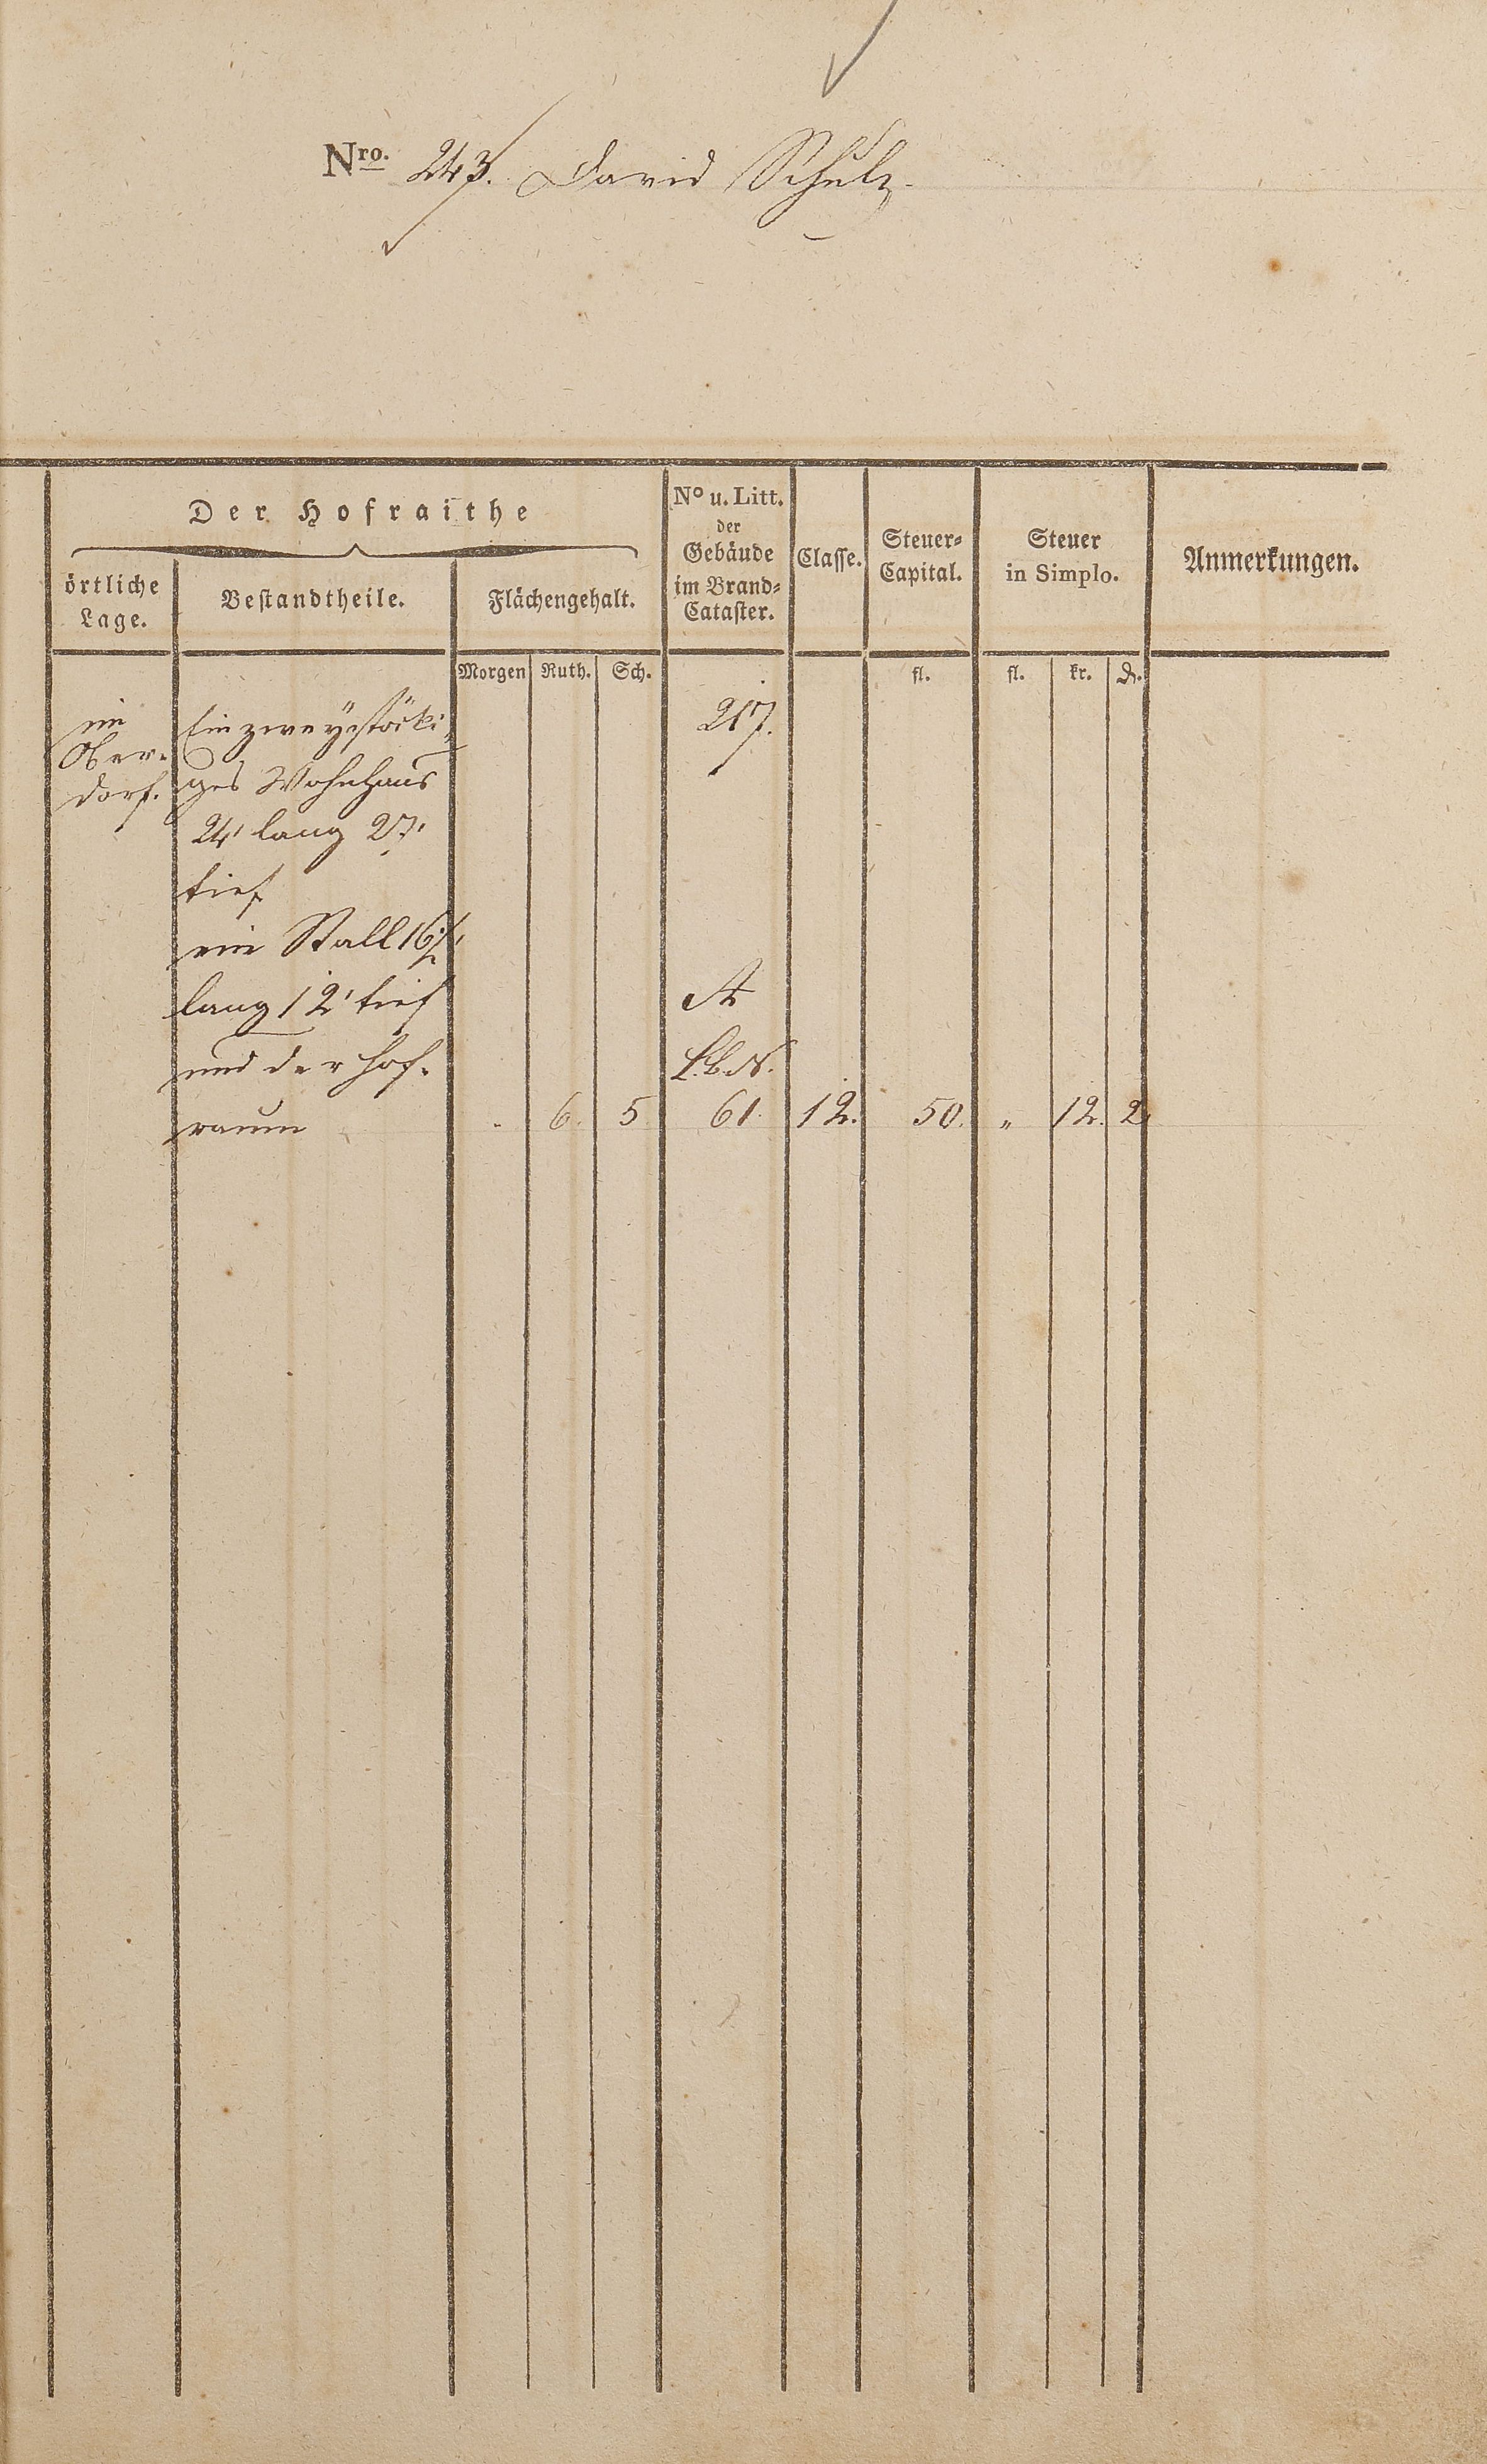 Nro. 243. David Schulz.
Der Hofraithe
örtliche Lage.
Bestandtheile.
Flächengehalt.
No u. Litt. der Gebäude im Brand-Cataster.
Classe.
Steuer-Capital.
Steuer in Simplo.
Anmerkungen.
Morgen Ruth. Sch. fl. fl. kr. ₰.
im Ein zweystöcki- 217.
Ober-
dorf. ges Wohnhaus
24' lang 27'
tief
ein Stall 16½'
lang 12' tief A
und der Hof- L.b.N.
raum . 6. 5 61. 12. 50. " 12. 2